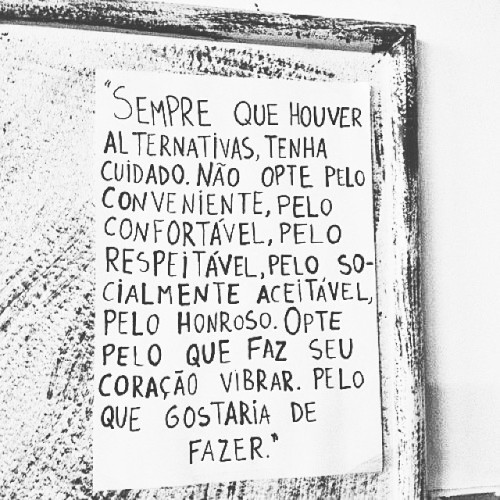 "SEMPRE QUE HOUVER
ALTERNATIVAS, TENHA
CUIDADO. NÃO OPTE PELO
CONVENIENTE, PELO
CONFORTÁVEL, PELO
RESPEITÁVEL, PELO SO-
CIALMENTE ACEITÁVEL,
PELO HONROSO. OPTE
PELO QUE FAZ SEU
CORAÇÃO VIBRAR. PELO
QUE GOSTARIA DE
FAZER."